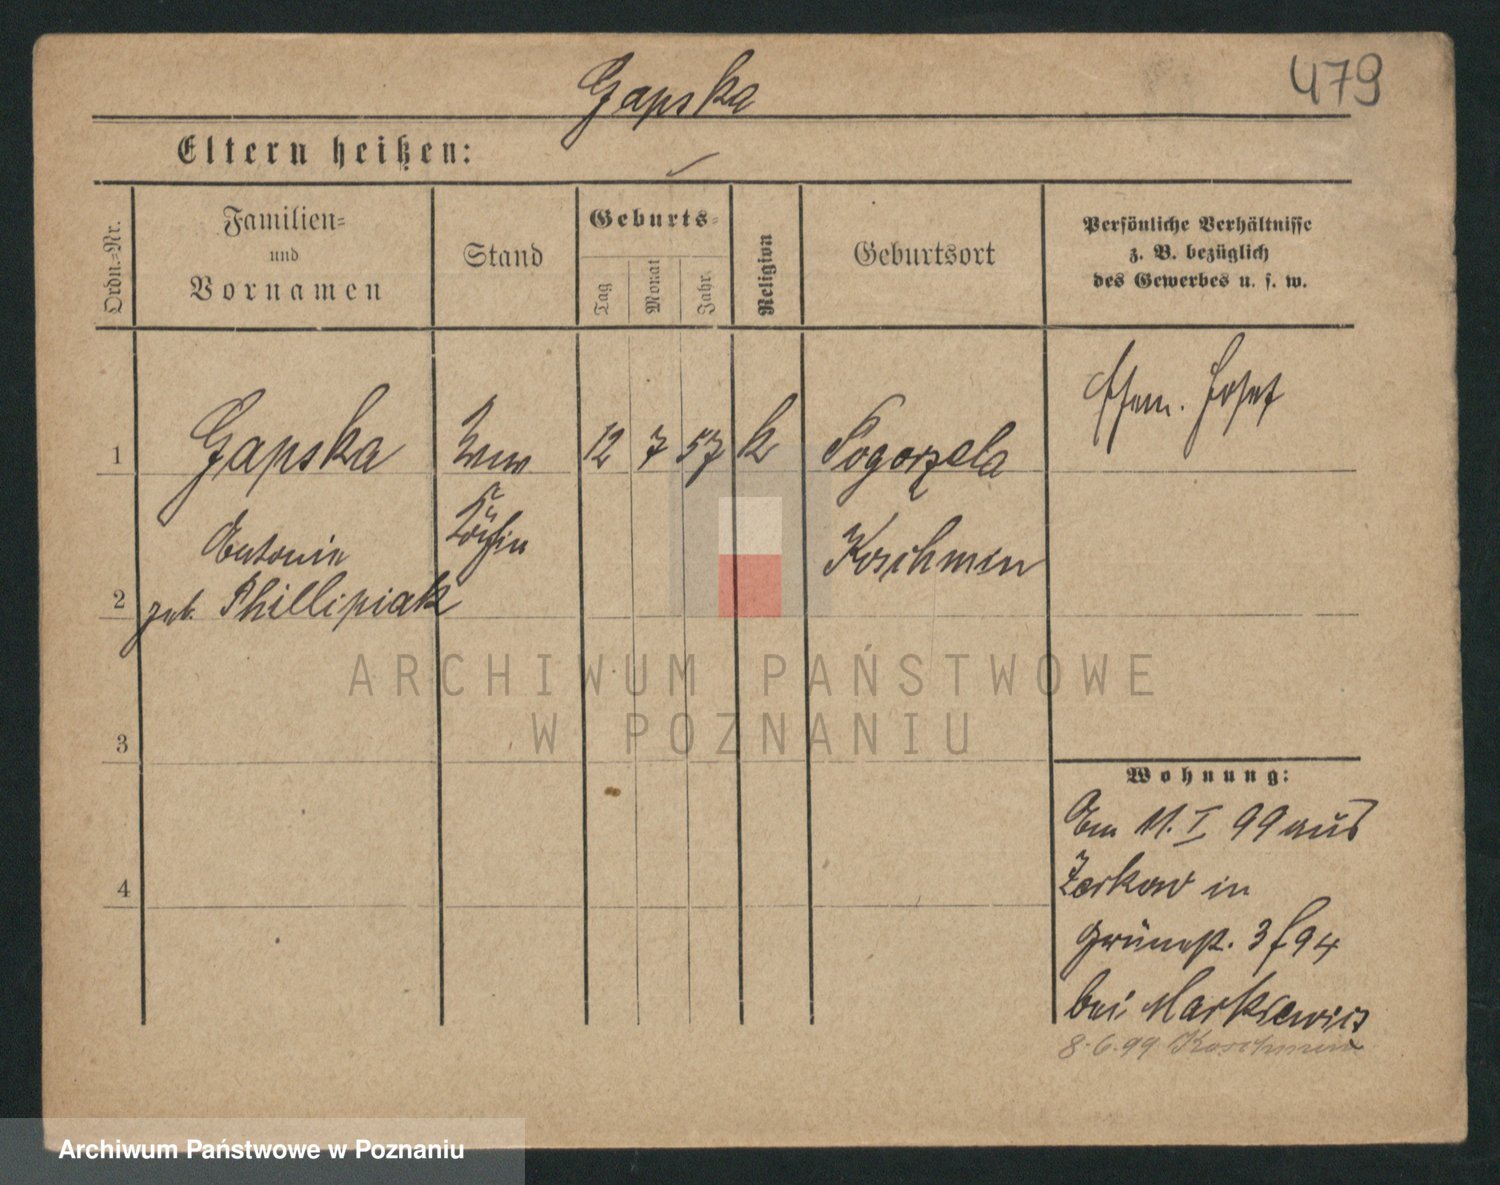 Gapska
479
Eltern heißen:
Ordn.=Nr.
Familien=
und
Vornamen
Stand
Geburts=
Tag
Monat
Jahr.
Religion
Geburtsort
Persönliche Verhältnisse
z. B. bezüglich
des Gewerbes u. s. w.
Ehem. Josef
1
Gapska
Wwe
12
7
57
k
Pogorzela
Antonie
Köchin
Koschmin
2
geb. Phillipiak
ARCHIWUM PAŃSTWOWE
W POZNANIU
3
Wohnung:
Am 11. I 99 aus
4
Zerkow in
Grünestr. 3 f 94
bei Markiewicz
8.6.99 Koschmin
Archiwum Państwowe w Poznaniu